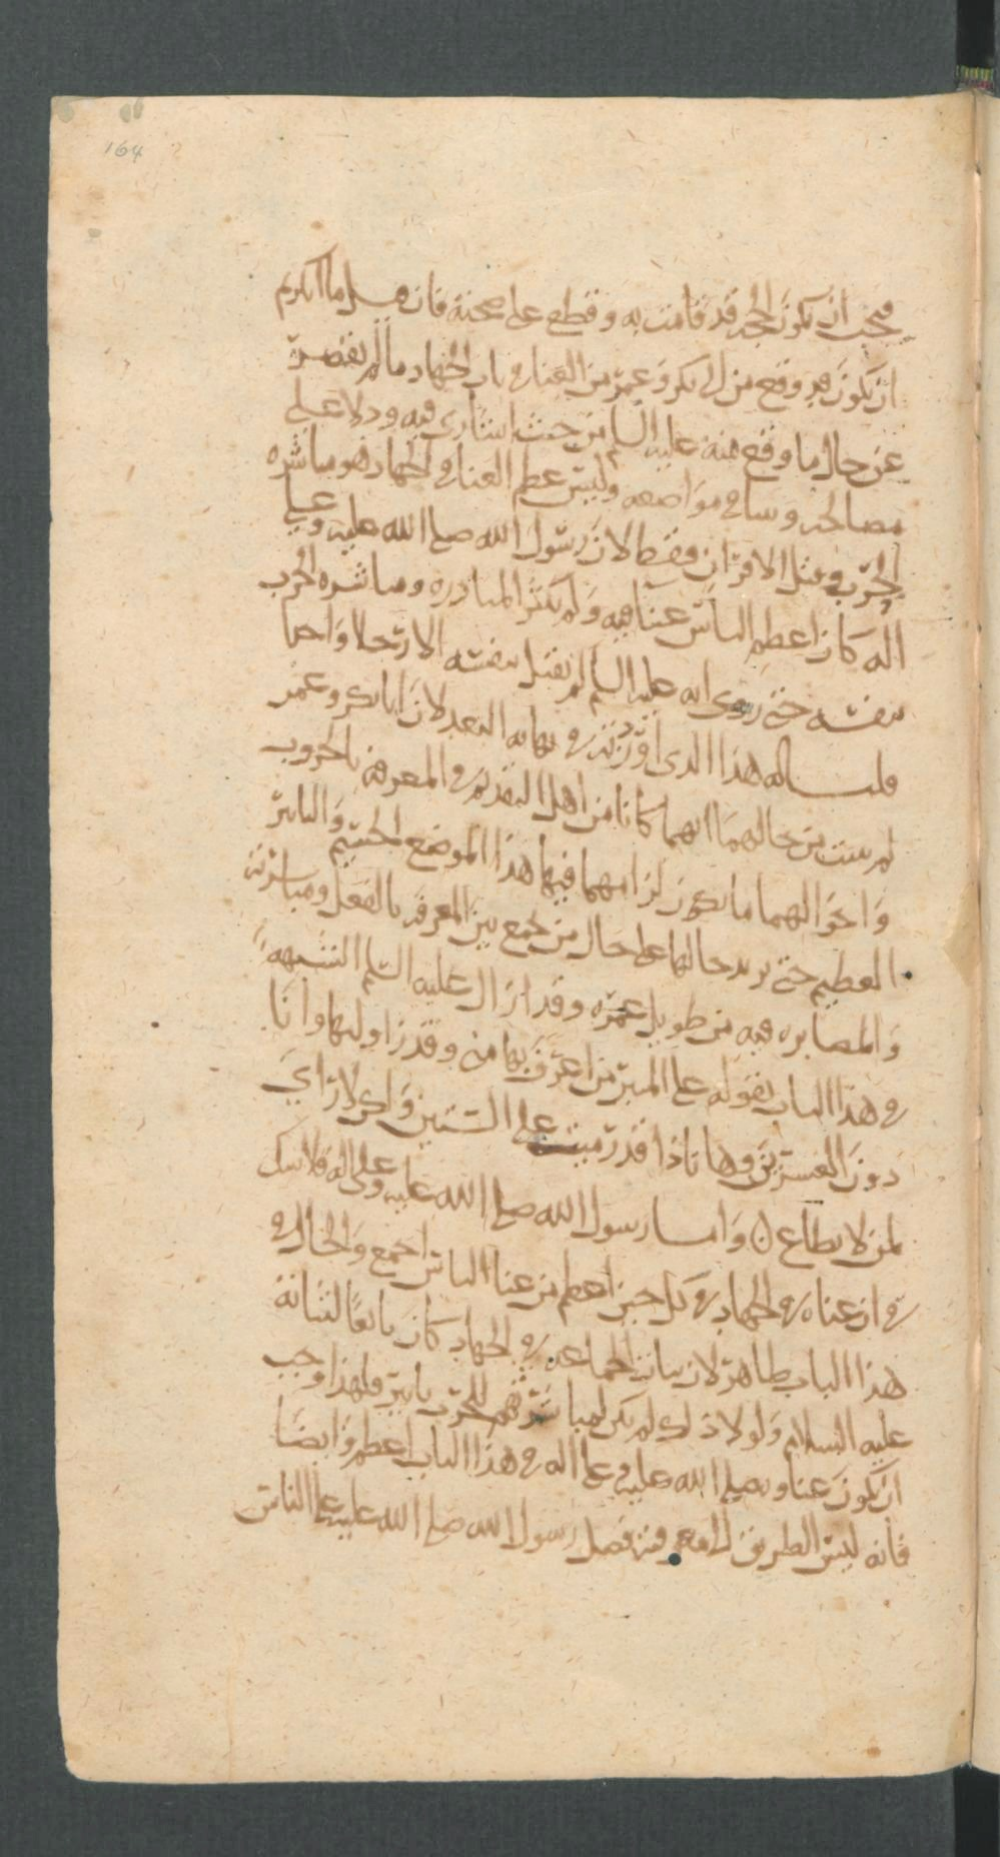 164
فيجب ان تكون الحجه قد قامت به وقطع على صحته فان قيل ما انكرتم
ان يكون قد وقع من ابي بكر وعمر من الغناء في باب الجهاد ما لم يقصر به
عن حال ما وقع منه عليه السلم من حيث اشارى فيه ودلا على
مصالحه وساق مواضعه وليس عظم الغنا في الجهاد هو مباشره
الحرب وقتل الاقران فقط لان رسول الله صلى الله عليه وعلى
اله كان اعظم الناس عنا فيه ولم يكثر المبادره ومباشره الحرب
بنفسه حتى روى انه عليه السلم لم يقتل بنفسه الا رجلا واحدا
قلنا له هذا الذي اوردته في نهايه البعد لان ابا بكر وعمر
لم يثبت من حالهما انهما كانا من اهل التقدم في المعرفه بالحروب
واحوالهما ما يكون لرايهما فيها هذا الموضع الجسيم والتاثير
العظيم حتى يزيد حالهما على حال من جمع بين المعرفه بالفعل ومباشرته
والمصابره فيه من طويل عمره وقد ازال عليه السلم الشبهه
في هذا الباب بقوله على المنبر من اعرف بها مني وقد زاولتها وانا
دون العشرين وها نا ذا قد رميت على الستين ولكن لا راي
لمن لا يطاع ن واما رسول الله صلى الله عليه وعلى اله فلا شك
في ان عناه في الجهاد في كل حين اعظم من عنا الناس اجمع والحال في
هذا الباب ظاهره لان ثبات الجماعه في الجهاد كان تابعا لثباته
عليه السلام ولولا ذلك لم يكن لمباشرتهم الحرب تاثير ولهذا وجب
ان يكون عناوه صلى الله عليه وعلى اله في هذا الباب اعظم وايضا
فانه ليس الطريق الى معرفه فضل رسول الله صلى الله عليه على الناس